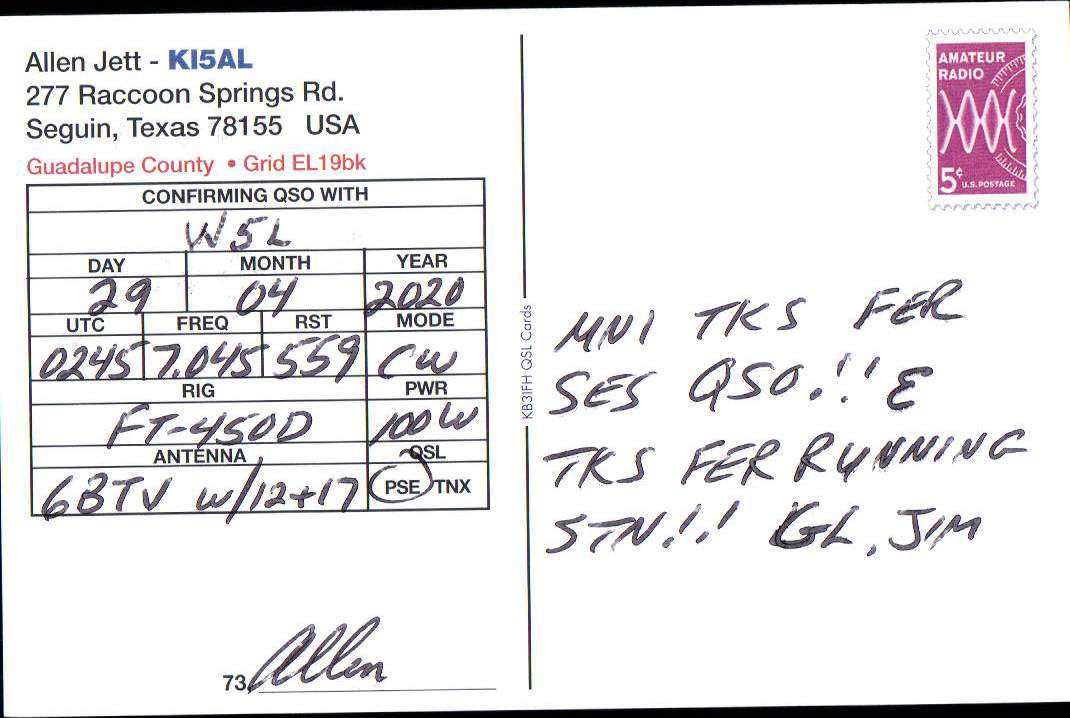 Allen Jett - KI5AL
277 Raccoon Springs Rd.
Seguin, Texas 78155 USA
Guadalupe County • Grid EL19bk
CONFIRMING QSO WITH
W5L
DAY MONTH YEAR
29 04 2020
UTC FREQ RST MODE
0245 7.045 559 CW
RIG PWR
FT-450D 100W
ANTENNA QSL
6BTV w/12+17 PSE TNX
73 Allen
KB3IFH QSL Cards
AMATEUR
RADIO
5¢ U.S. POSTAGE
MNI TKS FER
SES QSO!! &
TKS FER RUNNING
STN!! GL, JIM